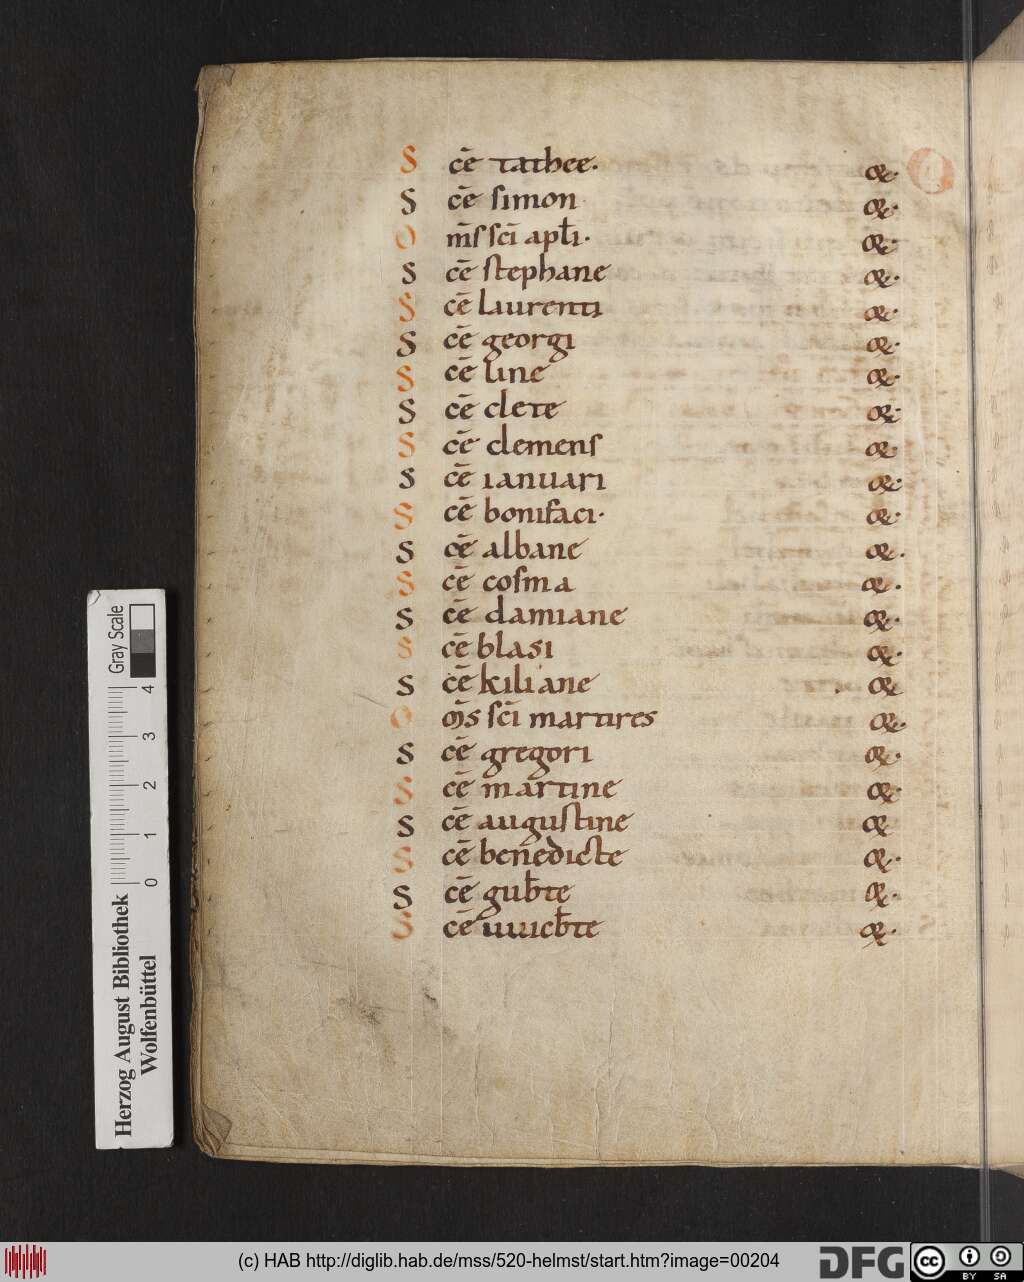 S cē tathee. &.
S cē simon &.
O m̄s sc̄i apƚi. &.
S cē stephane &.
S cē laurenti &.
S cē georgi &.
S cē line &.
S cē clete &.
S cē clemens &.
S cē ianuari &.
S cē bonifaci. &.
S cē albane &.
S cē cosma &.
S cē damiane &.
S cē blasi &.
S cē kiliane &
O m̄s sc̄i martires &.
S cē gregori &.
S cē martine &.
S cē augustine &
S cē benedicte &.
S cē gub̄te &.
S cē uuicb̄te &.
Gray Scale
4 3 2 1 0
Herzog August Bibliothek
Wolfenbüttel
(c) HAB http://diglib.hab.de/mss/520-helmst/start.htm?image=00204
DFG
cc BY SA